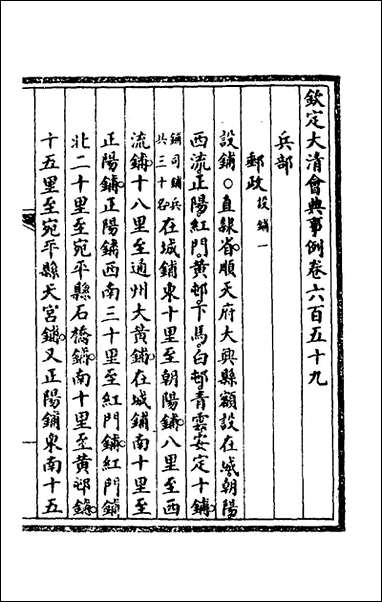 欽定大清會典事例卷六百五十九
兵部
郵政設鋪一
設鋪○直隸省順天府大興縣額設在城朝陽
西流正陽紅門黃邨下馬白邨青雲安定十鋪
鋪司鋪兵共三十名在城鋪東十里至朝陽鋪八里至西
流鋪十八里至通州大黃鋪在城鋪南十里至
正陽鋪正陽鋪西南三十里至紅門鋪紅門鋪
北二十里至宛平縣石橋鋪南十里至黃邨鋪
十五里至宛平縣天宮鋪又正陽鋪東南十五